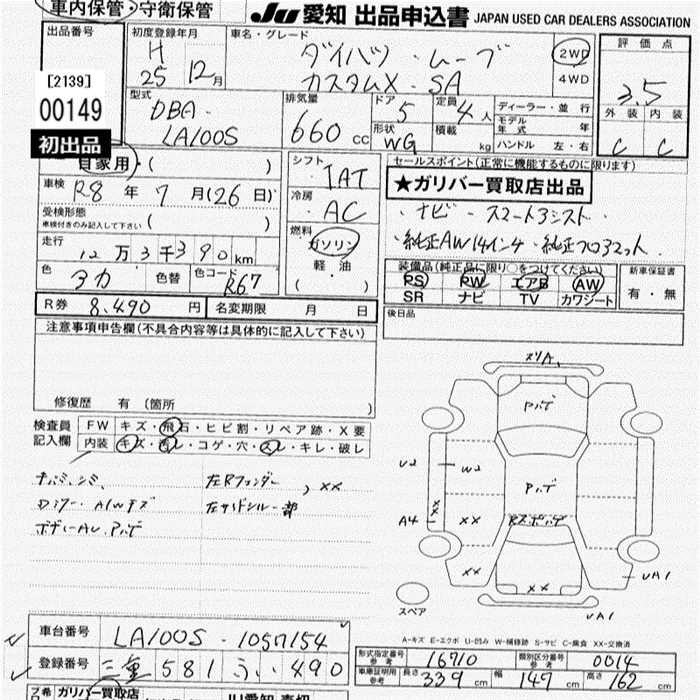 車内保管 守衛保管
JU 愛知 出品申込書 JAPAN USED CAR DEALERS ASSOCIATION
出品番号
[2139]
00149
初出品
初度登録年月
H
25 12月
車名・グレード
ダイハツ・ムーブ
カスタムX・SA
2WD
4WD
評価点
3.5
外装 内装
C C
型式
DBA-
LA100S
排気量
660 cc
ドア 5
形状 WG
定員 4 人
積載 kg
ディーラー・並行
モデル年式 年
ハンドル 左・右
自家用・( )
車検 R8 年 7 月(26日)
受検形態
車検付きのみ記入して下さい ( )
走行
12万3千390km
色 アカ 色替 色コード R67
シフト
IAT
冷房
AC
燃料
ガソリン
軽油
( ・ )
セールスポイント(正常に機能するものに限ります)
★ガリバー買取店出品
・ナビ・スマートアシスト・
・純正AW14インチ・純正フロアマット
装備品(純正品に限り○をつけてください)
RS PW エアB AW
SR ナビ TV カワシート
新車保証書
有・無
R券 8,490 円 名変期限 月 日
後日品
注意事項申告欄(不具合内容等は具体的に記入して下さい)
修復歴 有 (箇所 )
検査員記入欄
FW キズ・飛石・ヒビ割・リペア跡・X要
内装 キズ・汚レ・コゲ・穴・スレ・キレ・破レ
左Rフェンダー , XX
左サイドシル一部
スリA
U2
W2
A4
XX
XX
XX
UA1
UA1
スペア
A-キズ E-エクボ U-凹み W-補修跡 S-サビ C-腐食 XX-交換済
車台番号 LA100S-1057154
登録番号 三重 581 う 490
形式指定番号 参考 16710 類別区分番号 参考 0014
車庫証明用 参考 長さ 339 cm 幅 147 cm 高さ 162 cm
ガリバー買取店